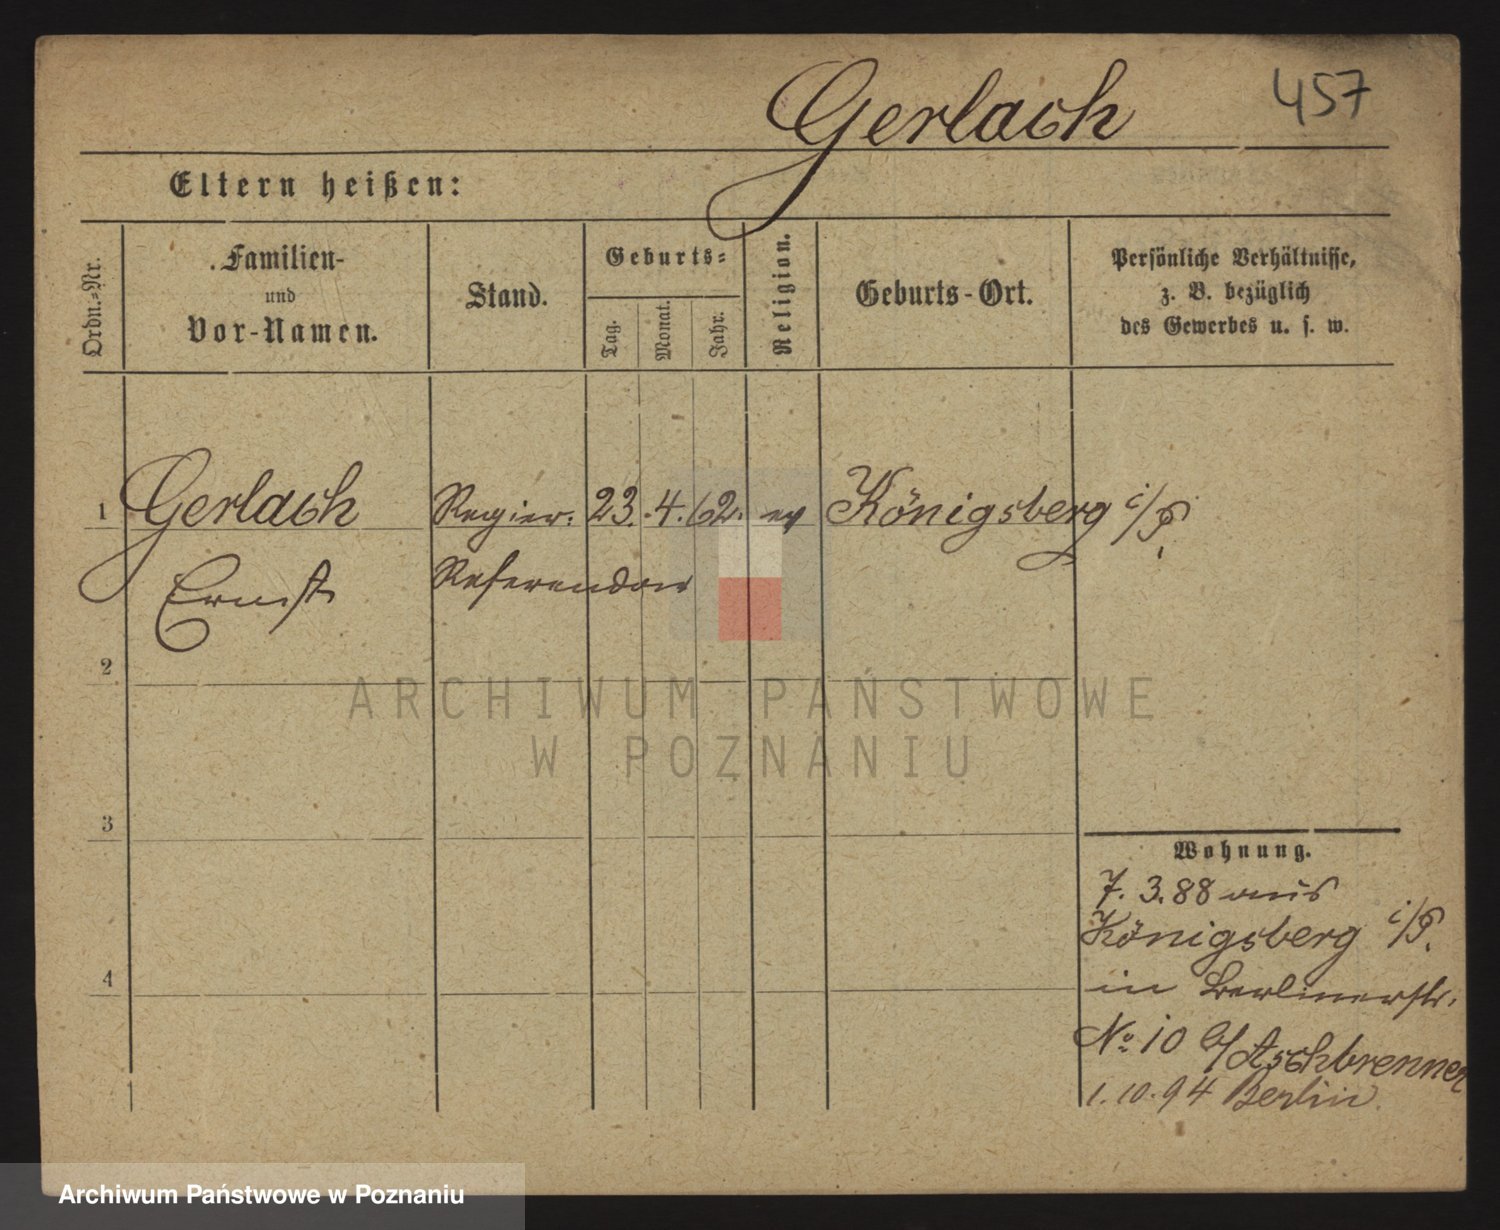 Gerlach 457
Eltern heißen:
Ordn.-Nr.
Familien-
und
Vor-Namen.
Stand.
Geburts-
Tag.
Monat.
Jahr.
Religion.
Geburts-Ort.
Persönliche Verhältnisse,
z. B. bezüglich
des Gewerbes u. s. w.
1 Gerlach Regier. 23. 4. 62. ev Königsberg i/P.
Ernst Referendar
2
ARCHIWUM PAŃSTWOWE
W POZNANIU
3
Wohnung.
7. 3. 88 aus
Königsberg i/P.
4
in Berlinerstr.
No 10 b/Aschbrenner
1. 10. 94 Berlin
Archiwum Państwowe w Poznaniu